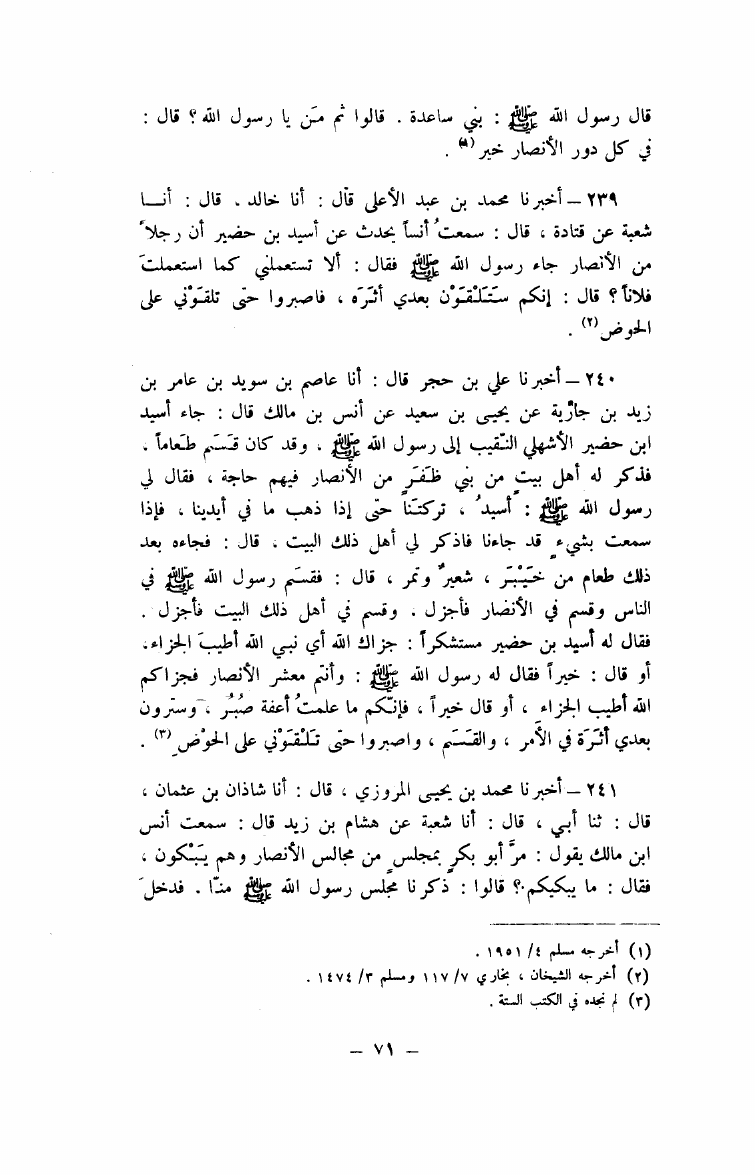 قال رسول الله ﷺ : بني ساعدة . قالوا ثم مَن يا رسول الله ؟ قال :
في كل دور الأنصار خير (١) .
٢٣٩ – أخبرنا محمد بن عبد الأعلى قال : أنا خالد . قال : أنــا
شعبة عن قتادة ، قال : سمعتُ أنساً يحدث عن أسيد بن حضير أن رجلاً
من الأنصار جاء رسول الله ﷺ فقال : ألا تستعملني كما استعملتَ
فلاناً ؟ قال : إنكم سَتَلْقَوْن بعدي أثَرَه ، فاصبروا حتى تلقَوْني على
الحوض(٢) .
٢٤٠ – أخبرنا علي بن حجر قال : أنا عاصم بن سويد بن عامر بن
زيد بن جارية عن يحيى بن سعيد عن أنس بن مالك قال : جاء أسيد
ابن حضير الأشهلي النقيب إلى رسول الله ﷺ ، وقد كان قَسَم طعاماً .
فذكر له أهل بيتٍ من بني ظَفَرٍ من الأنصار فيهم حاجة ، فقال لي
رسول الله ﷺ : أسيدُ ، تركتَنا حتى إذا ذهب ما في أيدينا ، فإذا
سمعت بشيءٍ قد جاءنا فاذكر لي أهل ذلك البيت . قال : فجاءه بعد
ذلك طعام من خَيْبَر ، شعيرٌ وتمر ، قال : فقسَم رسول الله ﷺ في
الناس وقسم في الأنصار فأجزل . وقسم في أهل ذلك البيت فأجزل .
فقال له أسيد بن حضير مستشكراً : جزاك الله أي نبي الله أطيبَ الجزاء .
أو قال : خيراً فقال له رسول الله ﷺ : وأنتم معشر الأنصار فجزاكم
الله أطيب الجزاء ، أو قال خيراً ، فإنّكم ما علمتُ أعفة صُبُر ، وسترون
بعدي أثَرَة في الأمر ، والقَسَم ، واصبروا حتى تَلْقَوْني على الحوْض(٣) .
٢٤١ – أخبرنا محمد بن يحيى المروزي ، قال : أنا شاذان بن عثمان ،
قال : ثنا أبي ، قال : أنا شعبة عن هشام بن زيد قال : سمعت أنس
ابن مالك يقول : مرَّ أبو بكرٍ بمجلسٍ من مجالس الأنصار وهم يَبْكون ،
فقال : ما يبكيكم ؟ قالوا : ذكرنا مجلس رسول الله ﷺ منّا . فدخلَ
(١) أخرجه مسلم ٤/ ١٩٥١ .
(٢) أخرجه الشيخان ، بخاري ٧/ ١١٧ ومسلم ٣/ ١٤٧٤ .
(٣) لم نجده في الكتب الستة .
– ٧١ –